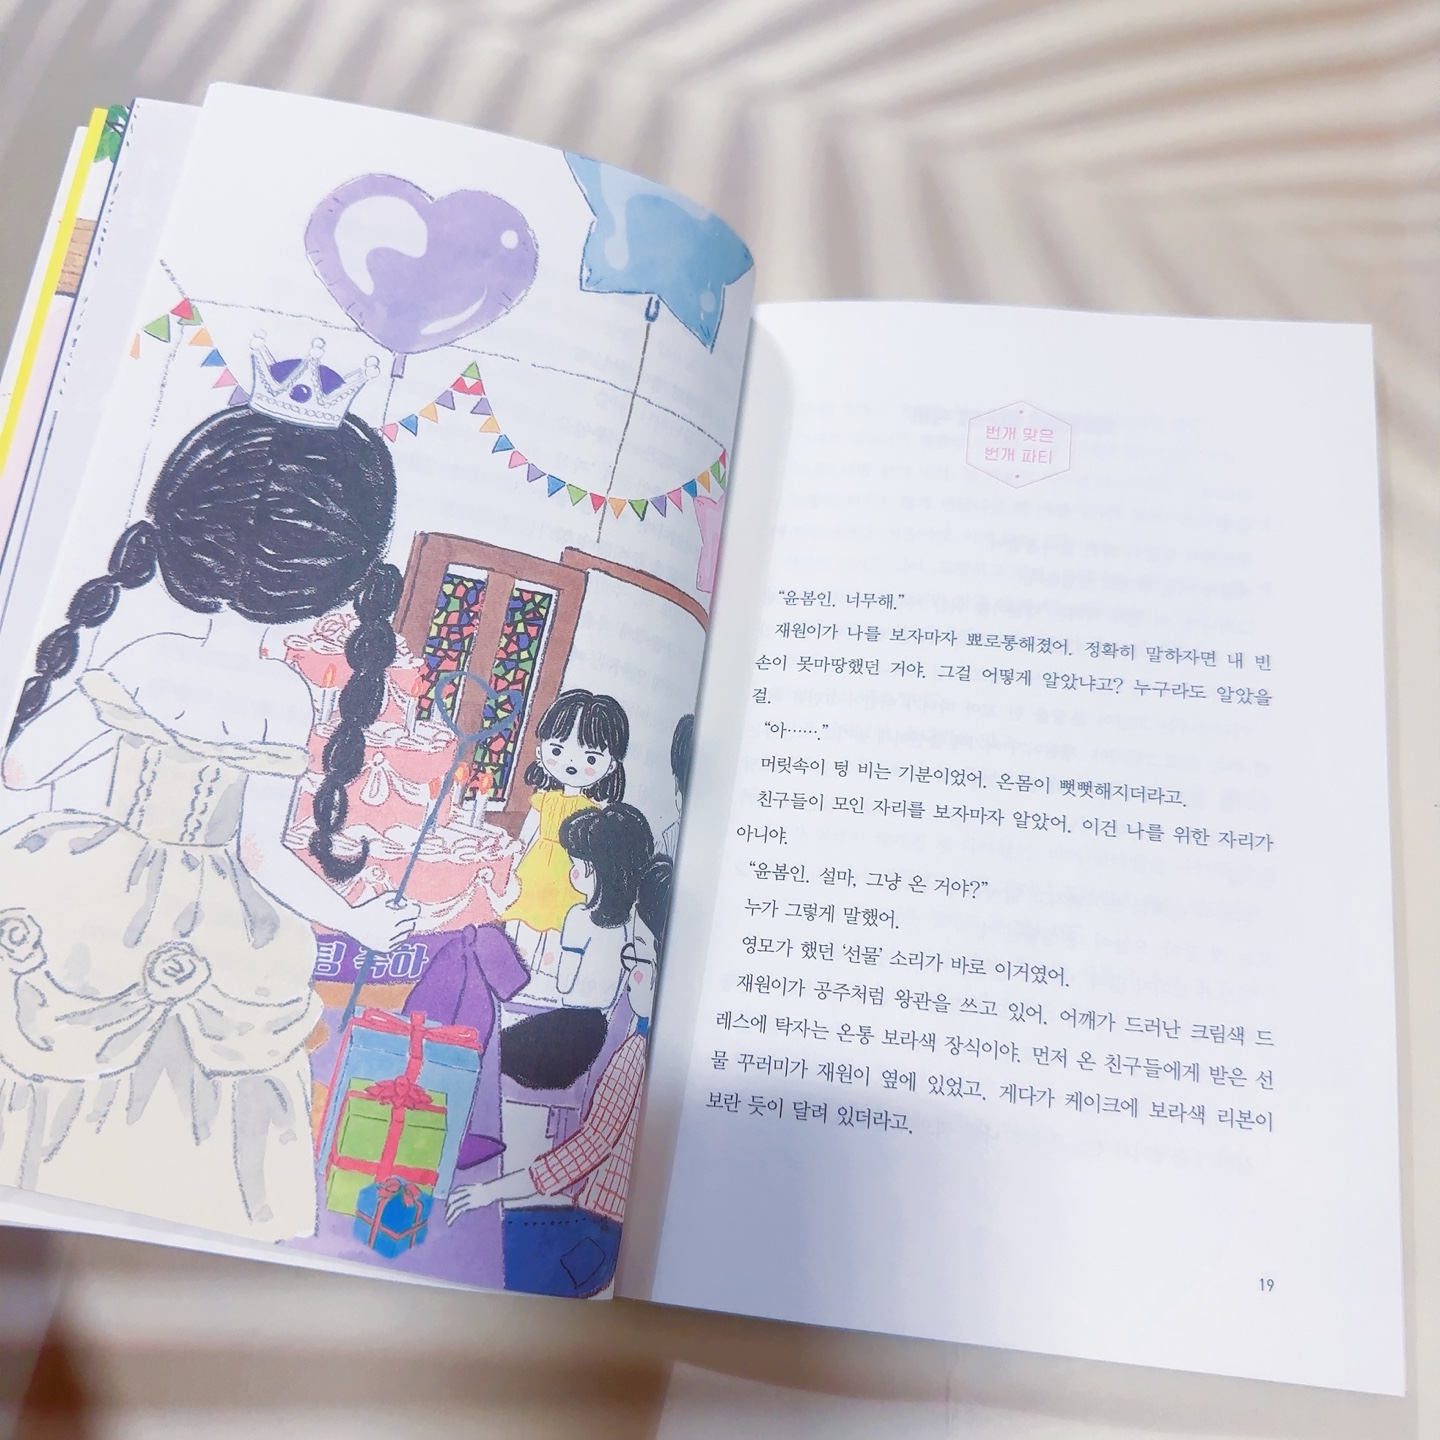 팀 축하
번개 맞은
번개 파티
“윤봄인. 너무해.”
재원이가 나를 보자마자 뾰로통해졌어. 정확히 말하자면 내 빈
손이 못마땅했던 거야. 그걸 어떻게 알았냐고? 누구라도 알았을
걸.
“아…….”
머릿속이 텅 비는 기분이었어. 온몸이 뻣뻣해지더라고.
친구들이 모인 자리를 보자마자 알았어. 이건 나를 위한 자리가
아니야.
“윤봄인. 설마, 그냥 온 거야?”
누가 그렇게 말했어.
영모가 했던 ‘선물’ 소리가 바로 이거였어.
재원이가 공주처럼 왕관을 쓰고 있어. 어깨가 드러난 크림색 드
레스에 탁자는 온통 보라색 장식이야. 먼저 온 친구들에게 받은 선
물 꾸러미가 재원이 옆에 있었고. 게다가 케이크에 보라색 리본이
보란 듯이 달려 있더라고.
19